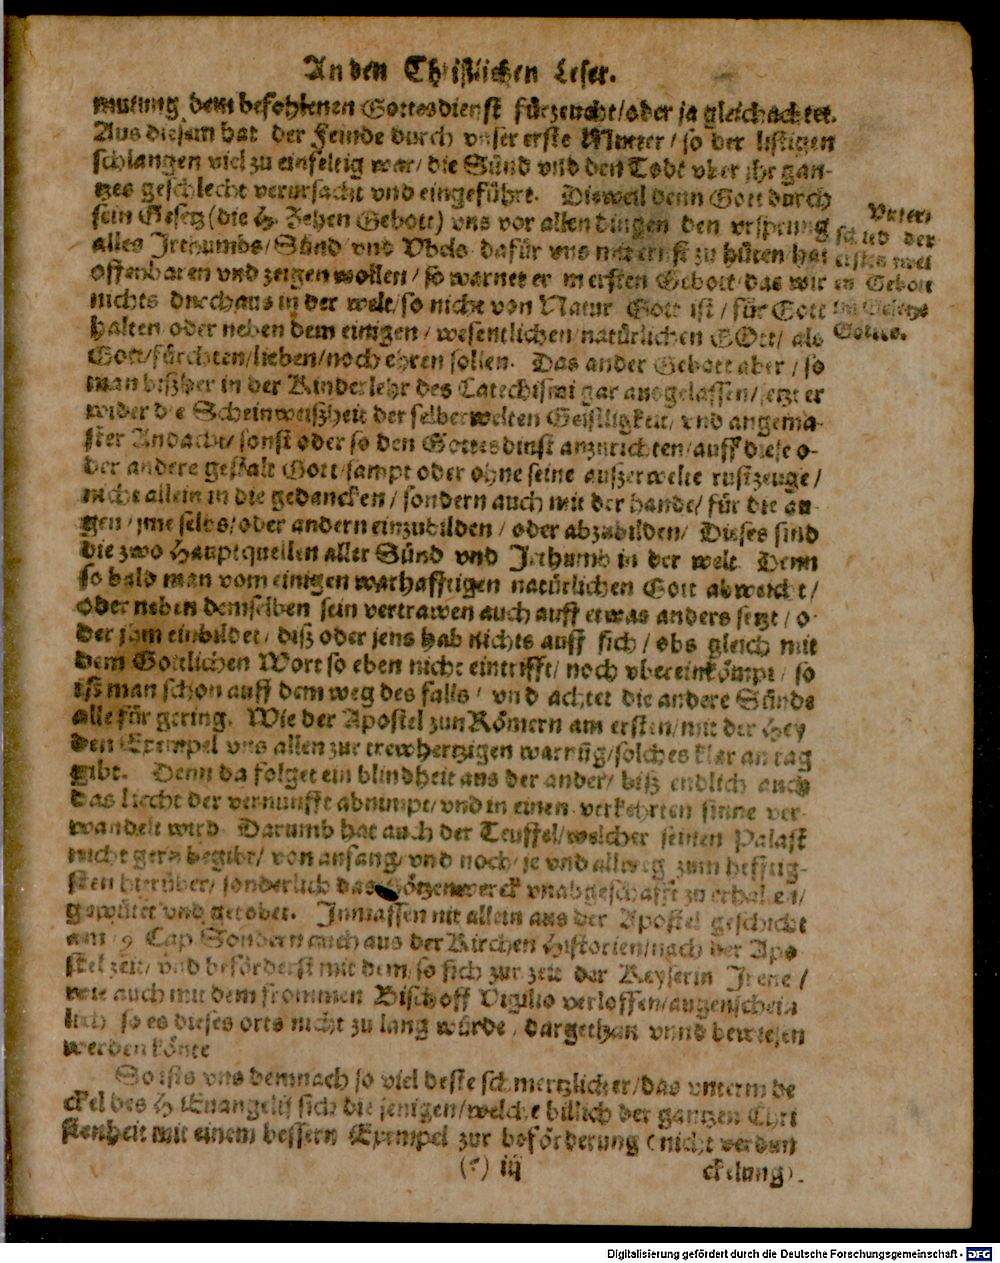 An den Christlichen Leser.
mutung dem befohlenen Gottesdienst fürzeucht/oder ja gleich achtet.
Aus diesem hat der Feinde durch vnser erste Mutter/ so der listigen
schlangen viel zu einfeltig war/ die Sünd vnd den Todt vber jhr gan-
tzes geschlecht verursacht vnd eingeführt. Dieweil denn Gott durch
sein Gesetz (die H. Zehen Gebott) vns vor allen dingen den vrsprung
alles Jrthumbs/ Sünd vnd Vbels dafür vns mit ernst zu hüten hat
offenbaren vnd zeigen wollen/ so warnet er im ersten Gebott/ das wir
nichts durchaus in der welt/ so nicht von Natur Gott ist/ für Gott
halten/ oder neben dem einigen/ wesentlichen/ natürlichen GOtt/ als
Gott/fürchten/lieben/noch ehren sollen. Das ander Gebott aber/ so
man bißher in der Kinderlehr des Catechismi gar ausgelassen/ setzt er
wider die Scheinweißheit der selberwelten Geistligkeit/ vnd angema-
ster Andacht/ sonst oder so den Gottesdinst anzurichten/ auff diese o-
der andere gestalt Gott/ sampt oder ohne seine außerwelte rustzeuge/
nicht allein in die gedancken/ sondern auch mit der hande/ für die au-
gen/ jme selbs/ oder andern einzubilden/ oder abzubilden/ Dieses sind
die zwo Hauptquellen aller Sünd vnd Jrthumb in der welt. Denn
so bald man vom einigen warhafftigen natürlichen Gott abweicht/
oder neben demselben sein vertrawen auch auff etwas anders setzt/ o-
der jhm einbildet/ diß oder jens hab nichts auff sich/ obs gleich mit
dem Göttlichen Wort so eben nicht eintrifft/ noch vbereinkömpt/ so
ist man schon auff dem weg des falls/ vnd achtet die andere Sünde
alle für gering. Wie der Apostel zun Römern am ersten/ mit der Hey
den Exempel vns allen zur trewhertzigen warnũg/ solches klar an tag
gibt. Denn da folget ein blindheit aus der ander/ biß endlich auch
das liecht der vernunfft abnimpt/ vnd in einen verkehrten sinne ver-
wandelt wird. Darumb hat auch der Teuffel/ welcher seinen Palast
nicht gern begibt/ von anfang/ vnd noch/ je vnd allweg zum hefftig-
sten hierüber/ sonderlich das Götzenwerck vnabgeschafft zu erhalten/
gewütet vnd getobet. Jnmassen nit allein aus der Apostel geschicht
am 19 Cap Sondern auch aus der Kirchen Historien/ nach der Apo
stel zeit/ vnd beförderst mit dem/ so sich zur zeit der Keyserin Jrene/
wie auch mit dem frommen Bischoff Vigilio verloffen/ augenschein
lich/ so es dieses orts nicht zu lang würde/ dargethan vnnd bewiesen
werden könte
So ists vns demnach so viel deste schmertzlicher/ das vnterm de
ckel des H Euangelij sich die jenigen/ welche billich der gantzen Chri
stenheit mit einem bessern Exempel zur beförderung (nicht verdun
(:) iij ckelung).
Vnter-
scheid der
ersten zwei
en Gebott
im Gesetze
Gottes.
Digitalisierung gefördert durch die Deutsche Forschungsgemeinschaft - DFG